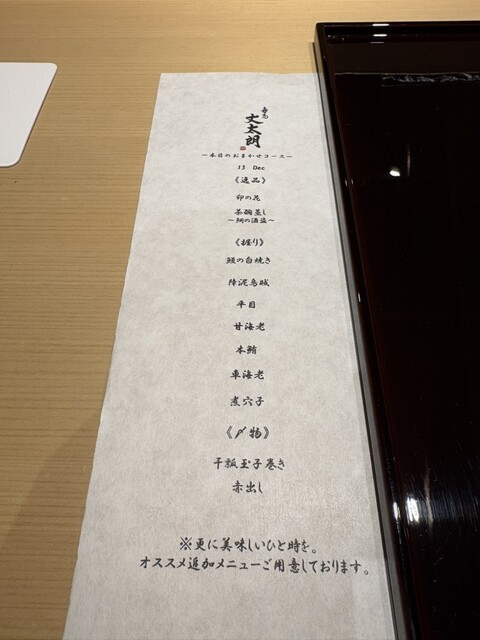 寿司
丈太朗
～本日のおまかせコース～
13 Dec
《逸品》
卯の花
茶碗蒸し
～鯛の酒盗～
《握り》
鰻の白焼き
障泥烏賊
平目
甘海老
本鮪
車海老
煮穴子
《〆物》
干瓢玉子巻き
赤出し
※更に美味しいひと時を。
オススメ追加メニューご用意しております。